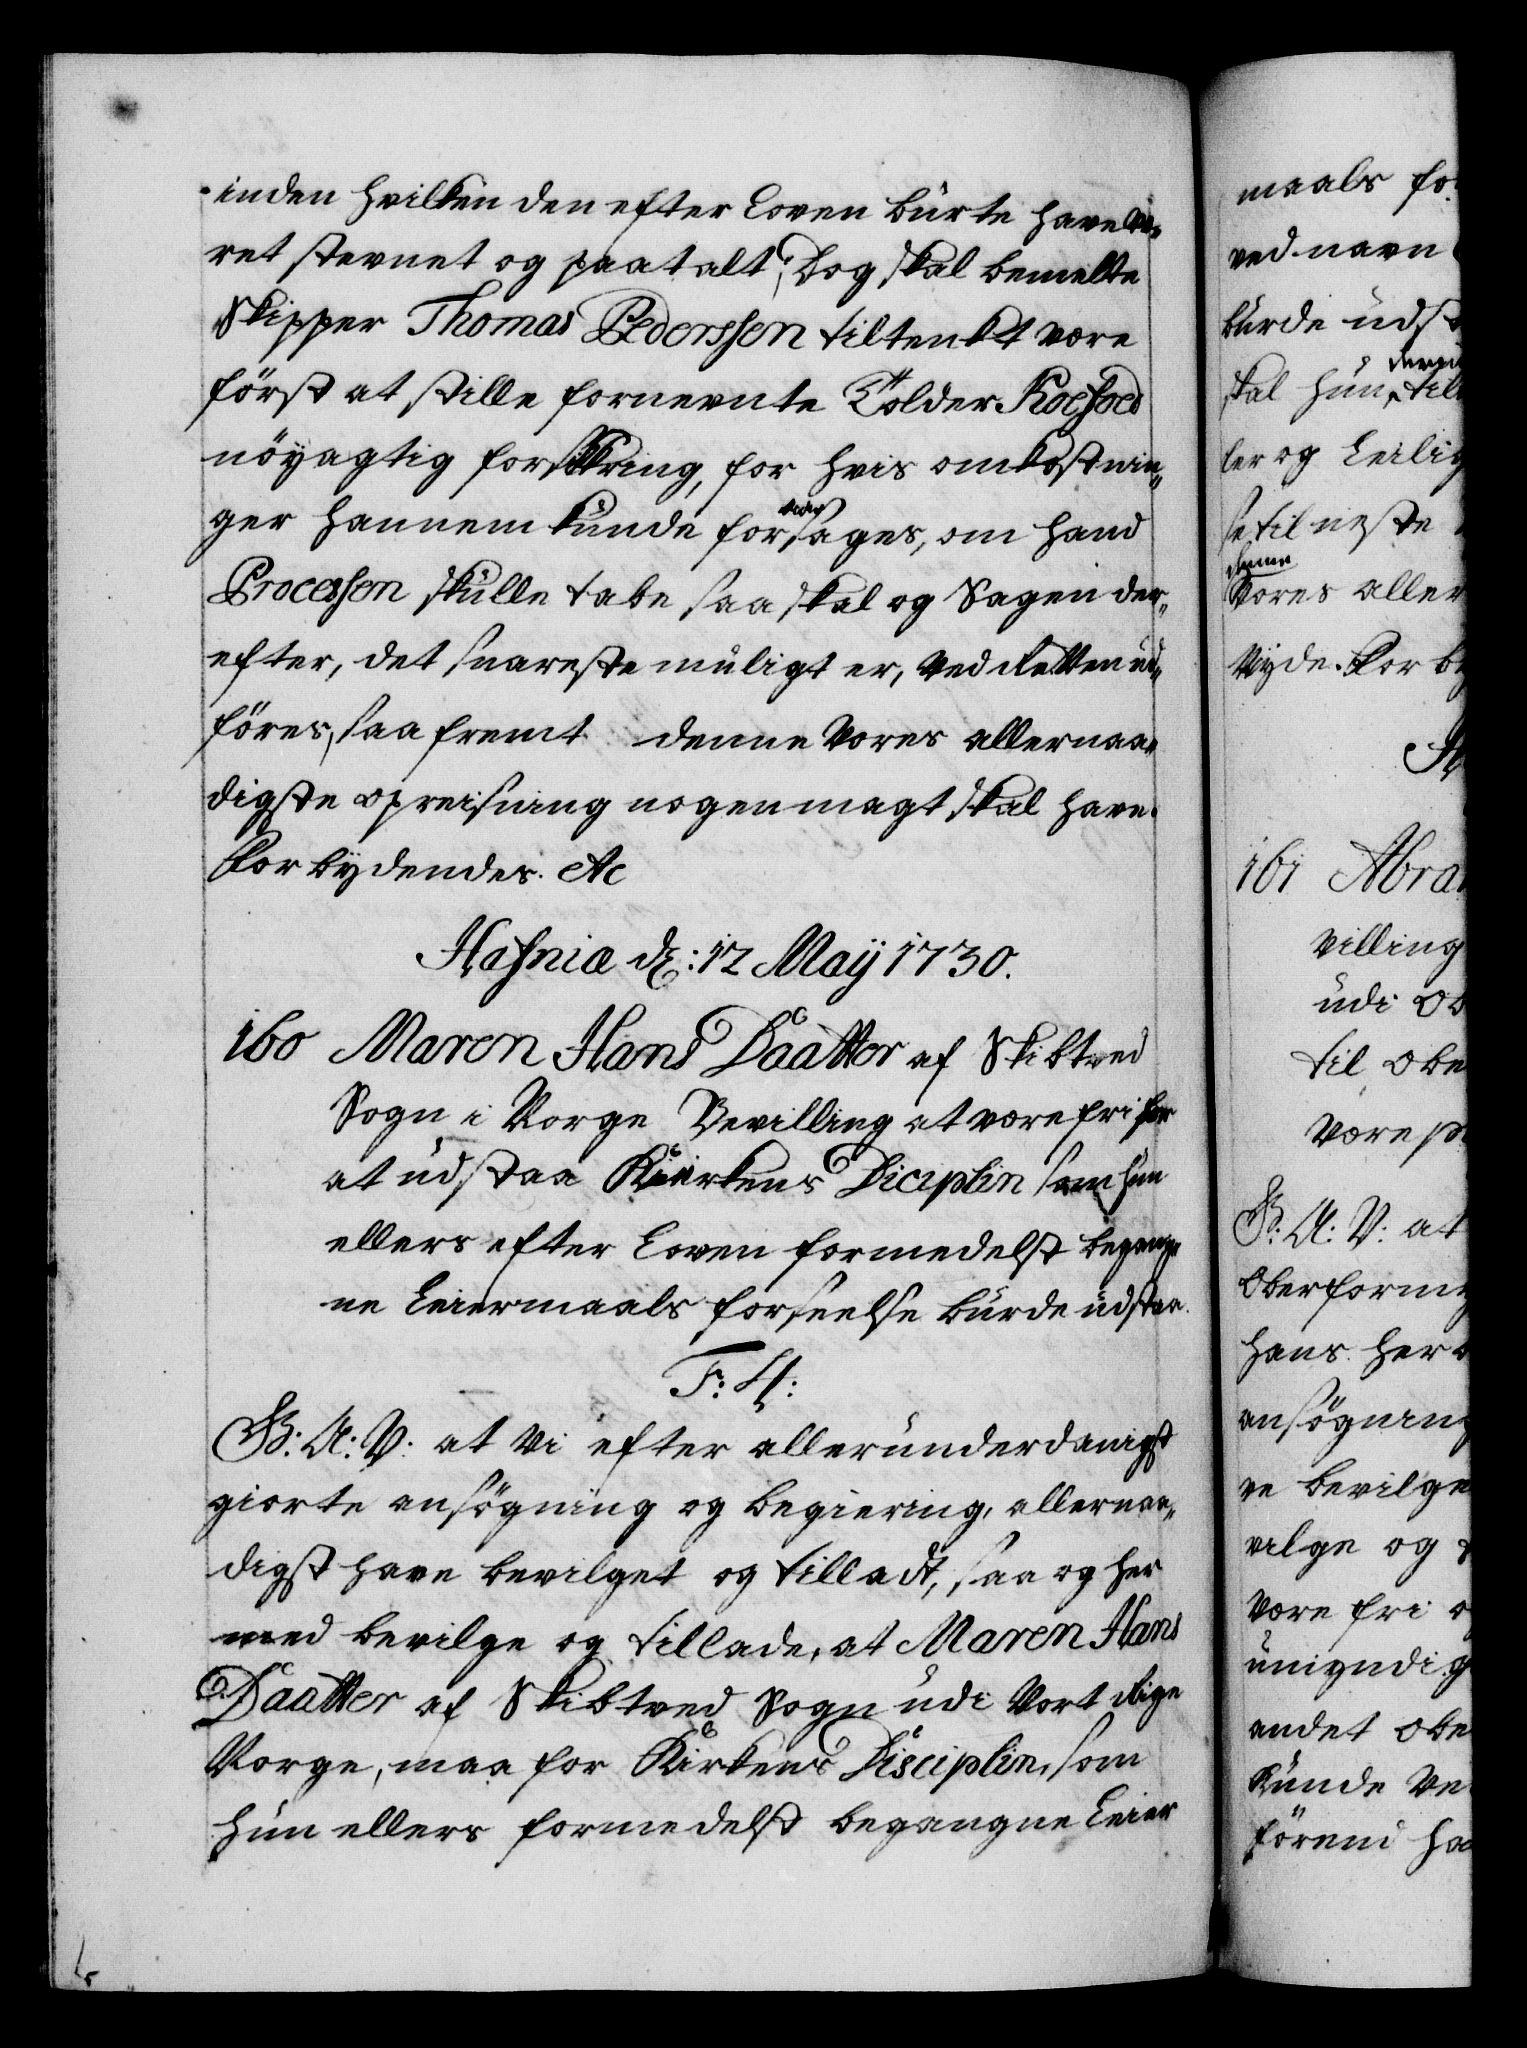 inden hvilken den efter Loven burte have væ-
ret stevnet og paatalt; Dog skal bemelte
Skipper Thomas Pederssen tiltenkt være
först at stille fornevnte Tolder Koefoed
nöyagtig forsikring, for hvis omkostnin-
ger hannem kunde foraarsages, om hand
Processen skulle tabe saa skal og Sagen der-
efter, det snareste muligt er, ved Retten ud-
föres, saa fremt denne Vores allernaa-
digste opreisning nogen magt skal have.
Forbydendes. Ac
Hafniæ d: 12 Maÿ 1730.
160 Maren Hans Daatter af Skibtved
Sogn i Norge Bevilling at være fri for
at udstaa Kirkens Diciplin som hun
ellers efter Loven formedelst begang-
ne Leiermaals forseelse burde udstaa.
F: H:
G: A: V: at Vi efter allerunderdanigst
giorte ansögning og begiering, allernaa-
digst have bevilget og tilladt, saa og her
med bevilge og tillade, at Maren Hans
Daatter af Skibtved Sogn udi Vort Rige
Norge, maa for Kirkens Disciplin, som
hun ellers formedelst begangne Leier
maals
ved navn
burde udst
skal hun
ler og Leilig
se til neste
denne
Vores aller
Vijde. For by
161 Abra
Villing
udi Ob
til Obe
være
G: A: V: at
Oberform
hans her
ansögning
ve bevilge
vilge og
være fri o
umyndig
andet obe
kunde Ve
förend ha